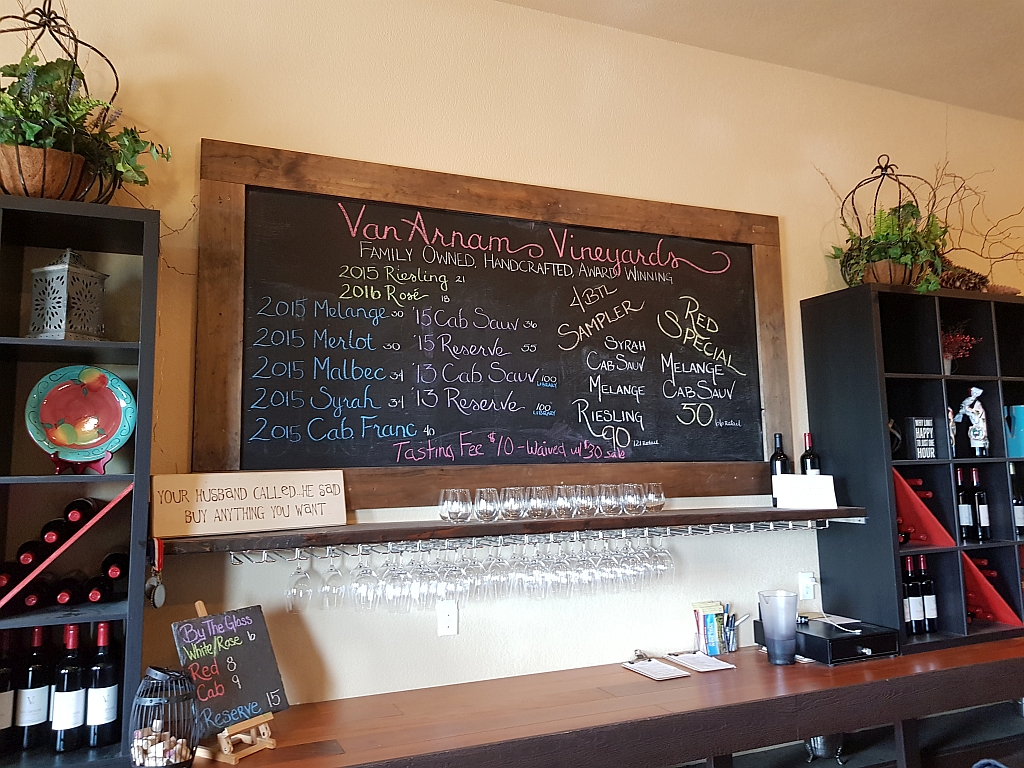 Van Arnam Vineyards
Family Owned, Handcrafted, Award Winning
2015 Riesling 21
2016 Rosé 18
2015 Melange 30
2015 Merlot 30
2015 Malbec 34
2015 Syrah 34
2015 Cab Franc 40
'15 Cab Sauv 36
'15 Reserve 55
'13 Cab Sauv 100 Library
'13 Reserve 100 Library
4 BTL
Sampler
Syrah
Cab Sauv
Melange
Riesling
90 121 Retail
Red
Special
Melange
Cab Sauv
50 66 Retail
Tasting Fee $10 - Waived w/ $30 sale
YOUR HUSBAND CALLED...HE SAID
BUY ANYTHING YOU WANT
By The Glass
White/Rose 6
Red 8
Cab 9
Reserve 15
HAPPY
HOUR